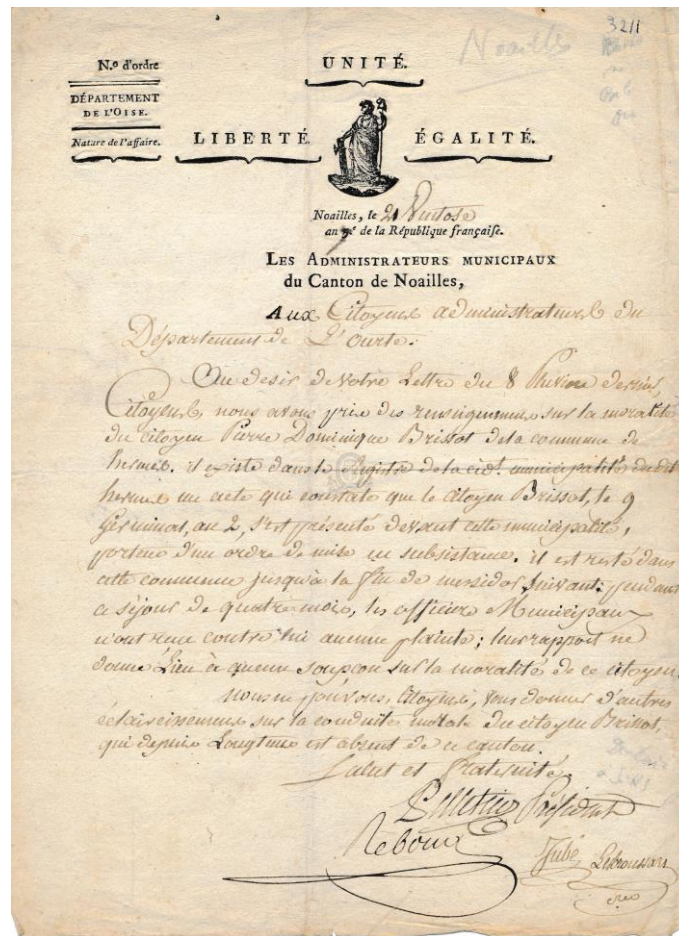 3211
Noailles
N.º d'ordre
UNITÉ.
DÉPARTEMENT
DE L'OISE.
Nature de l'affaire.
LIBERTÉ
ÉGALITÉ.
Noailles, le 21 Ventose
an 7e de la République française.
LES ADMINISTRATEURS MUNICIPAUX
du Canton de Noailles,
Aux Citoyens administrateurs du
Département de L'ourte.
Au desir de votre Lettre du 8 Pluviose dernier,
Citoyens, nous avons pris des renseignemens sur la moralité
du citoyen Pierre Dominique Brissot de la commune de
hermes. il existe dans le registre de la cidt. municipalité dudit
hermes un acte qui constate que le citoyen Brissot, le 9
Germinal, an 2, s'est présenté devant cette municipalité,
porteur d'un ordre de mise en subsistance. il est resté dans
cette commune jusqu'à la fin de messidor suivant; pendant
ce séjour de quatre mois, les officiers Municipaux
n'ont reçu contre lui aucune plainte; leur rapport ne
donne Lieu à aucun soupçon sur la moralité de ce citoyen.
nous ne pouvons, Citoyens, vous donner d'autres
éclaircissemens sur la conduite morale du citoyen Brissot,
qui depuis Longtems est absent de ce canton.
Salut et fraternité.
Président
Jubé